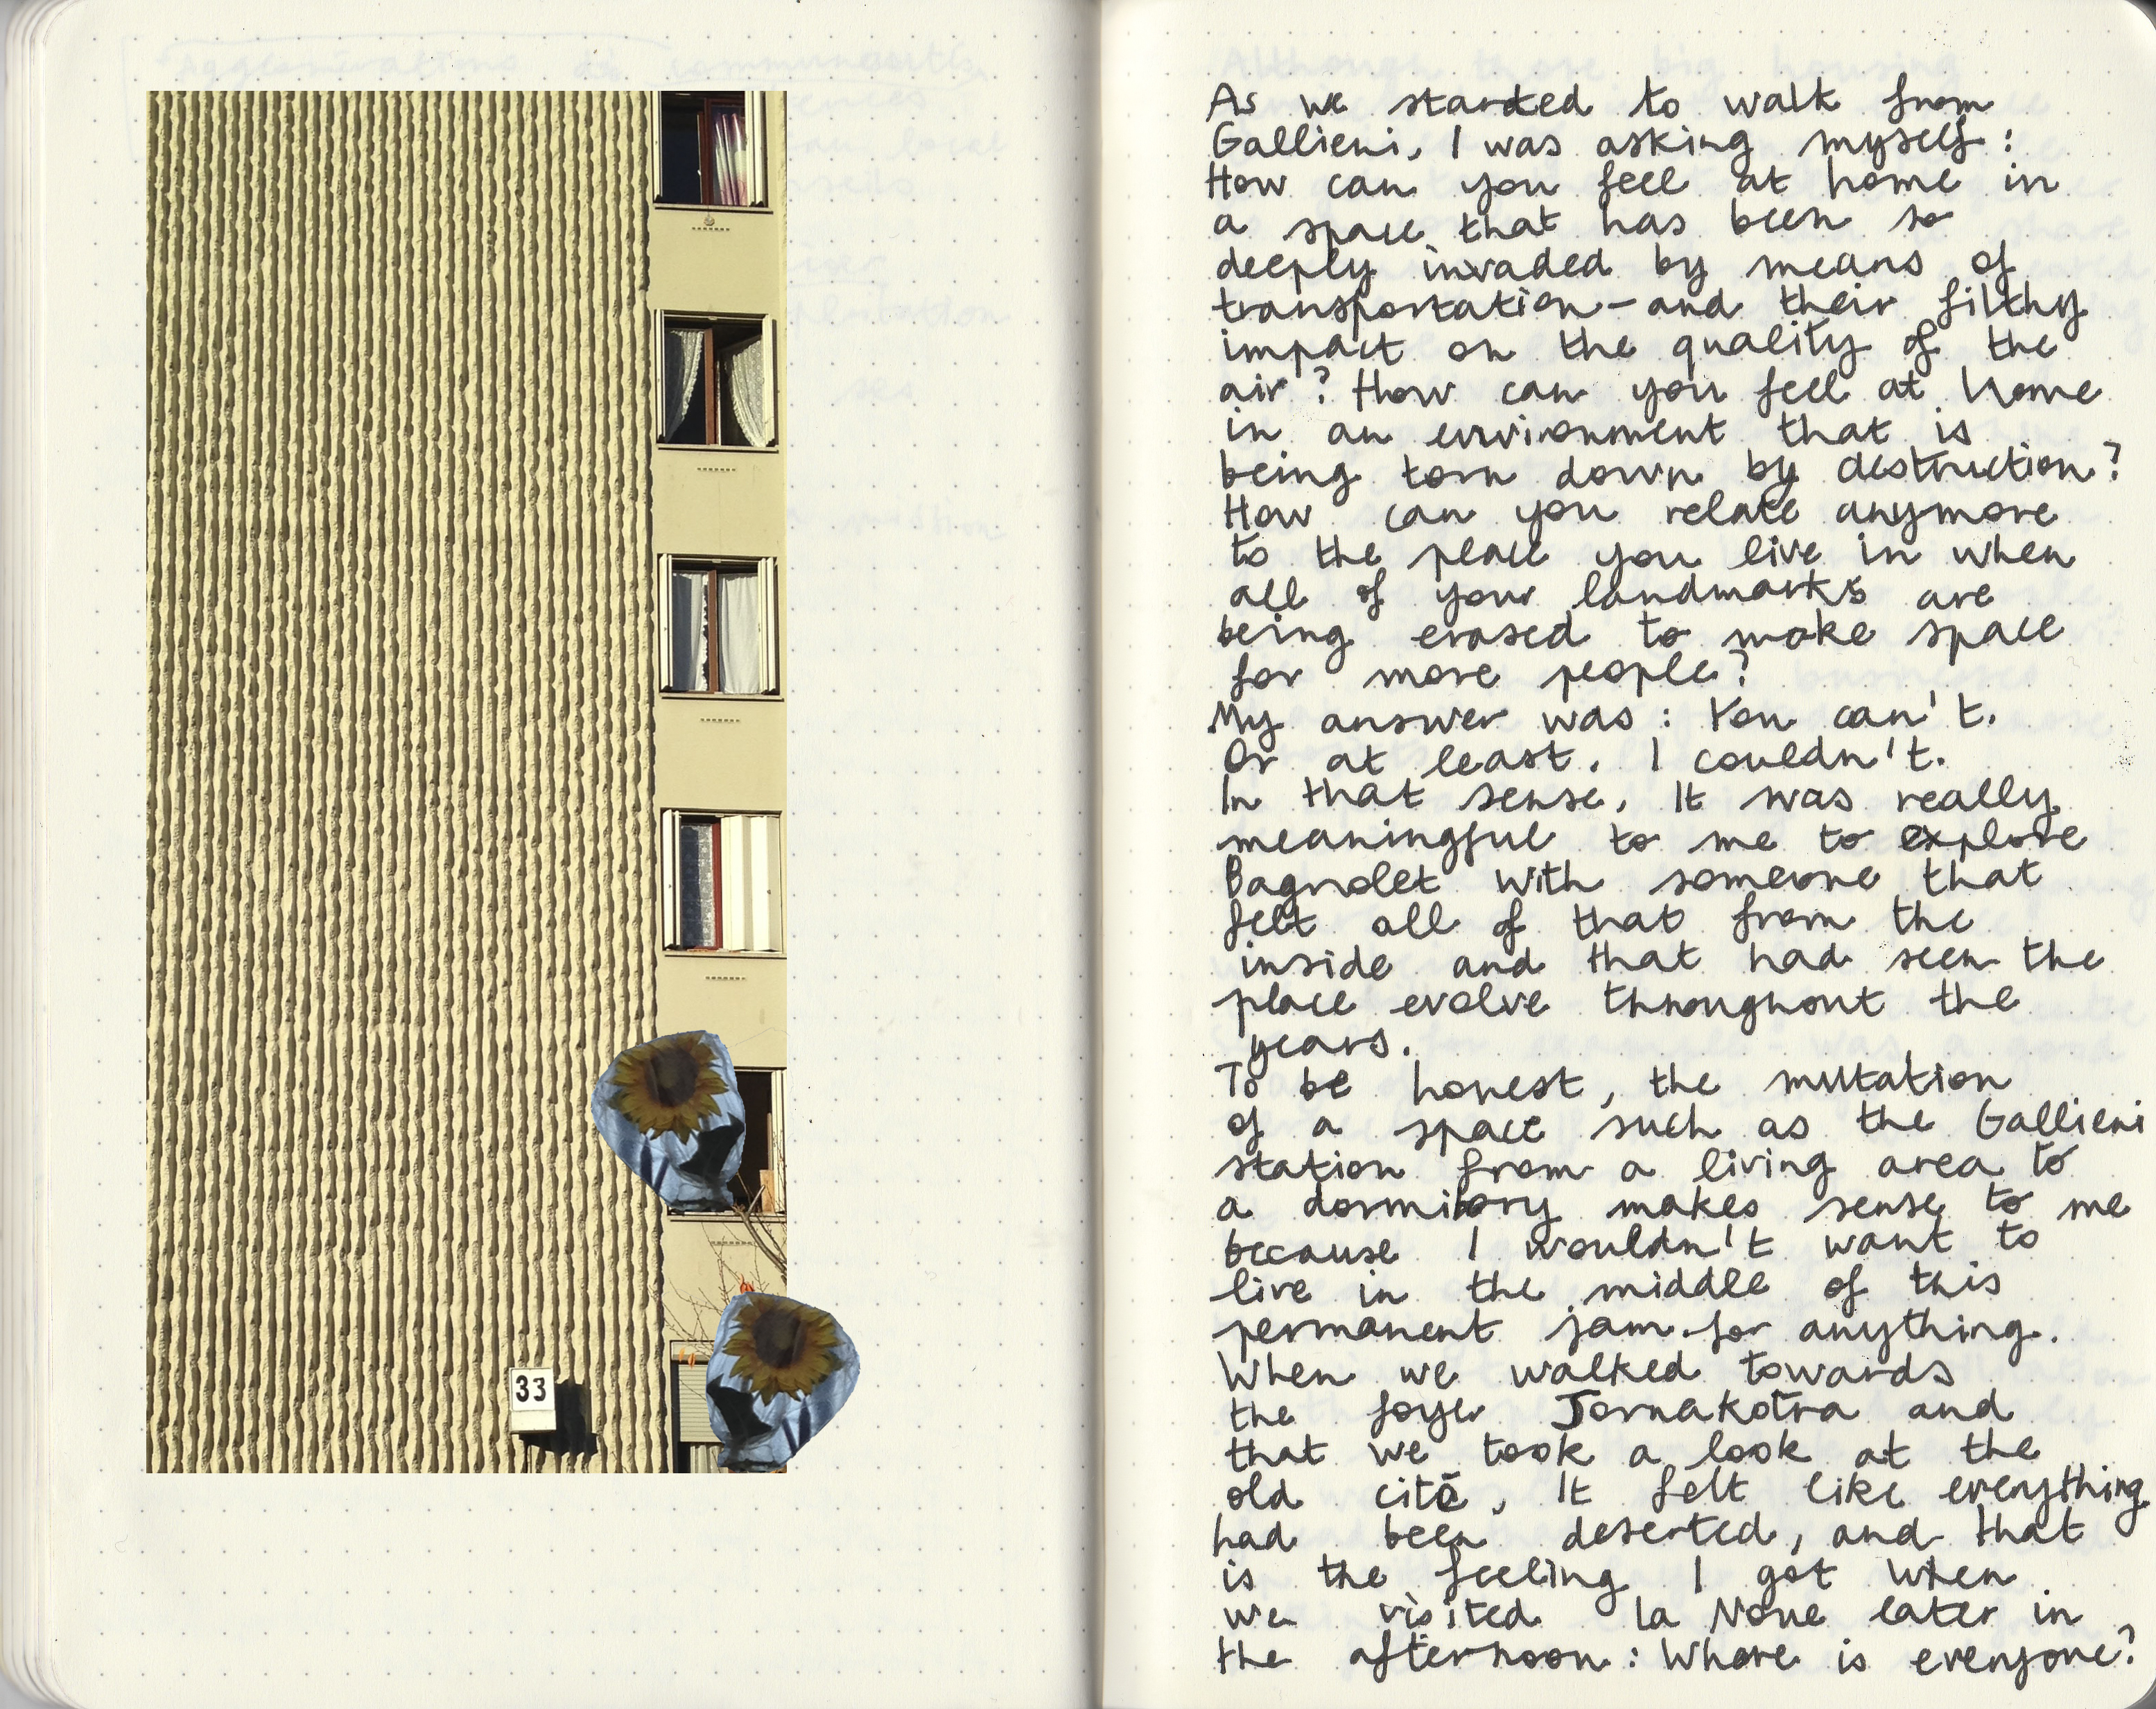 33
As we started to walk from
Gallieni, I was asking myself :
How can you feel at home in
a space that has been so
deeply invaded by means of
transportation - and their filthy
impact on the quality of the
air ? How can you feel at home
in an environment that is
being torn down by destruction ?
How can you relate anymore
to the place you live in when
all of your landmarks are
being erased to make space
for more people ?
My answer was : You can't.
Or at least, I couldn't.
In that sense, It was really
meaningful to me to explore
Bagnolet with someone that
felt all of that from the
inside and that had seen the
place evolve throughout the
years.
To be honest, the mutation
of a space such as the Gallieni
station from a living area to
a dormitory makes sense to me
because I wouldn't want to
live in the middle of this
permanent jam for anything.
When we walked towards
the foyer and
that we took a look at the
old cité, It felt like everything
had been deserted, and that
is the feeling I got when
we visited la Noue later in
the afternoon : Where is everyone ?